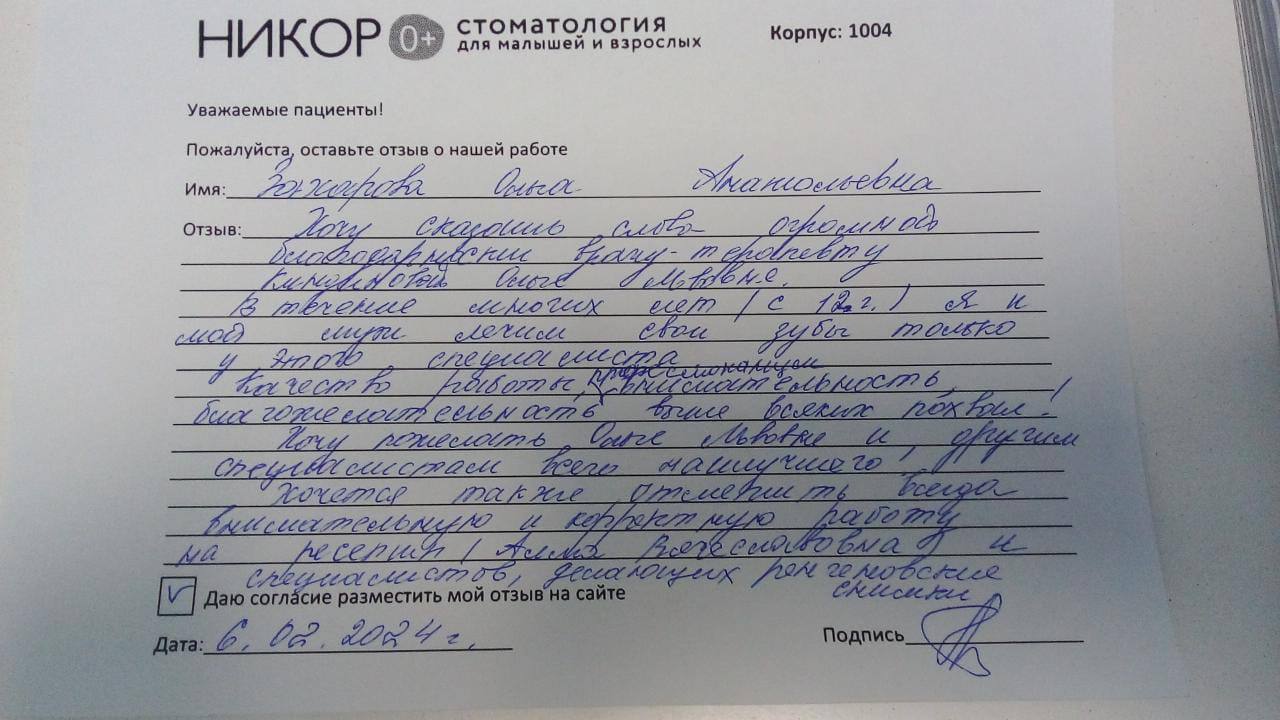 НИКОР 0+ СТОМАТОЛОГИЯ
для малышей и взрослых
Корпус: 1004
Уважаемые пациенты!
Пожалуйста, оставьте отзыв о нашей работе
Имя: Ольга Анатольевна
Отзыв: Хочу сказать слова огромной
благодарности врачу-терапевту
Ольге Львовне.
В течение многих лет (с 12 г.) я и
мой муж лечим свои зубы только
у этого специалиста
Качество работы, профессионализм внимательность,
благожелательность выше всяких похвал!
Хочу пожелать Ольге Львовне и другим
специалистам всего наилучшего!
Хочется также отметить всегда
внимательную и корректную работу
на ресепшн (Алла Вячеславовна) и
специалистов, делающих ренгеновские
снимки
Даю согласие разместить мой отзыв на сайте
Дата: 6.02.2024 г.
Подпись